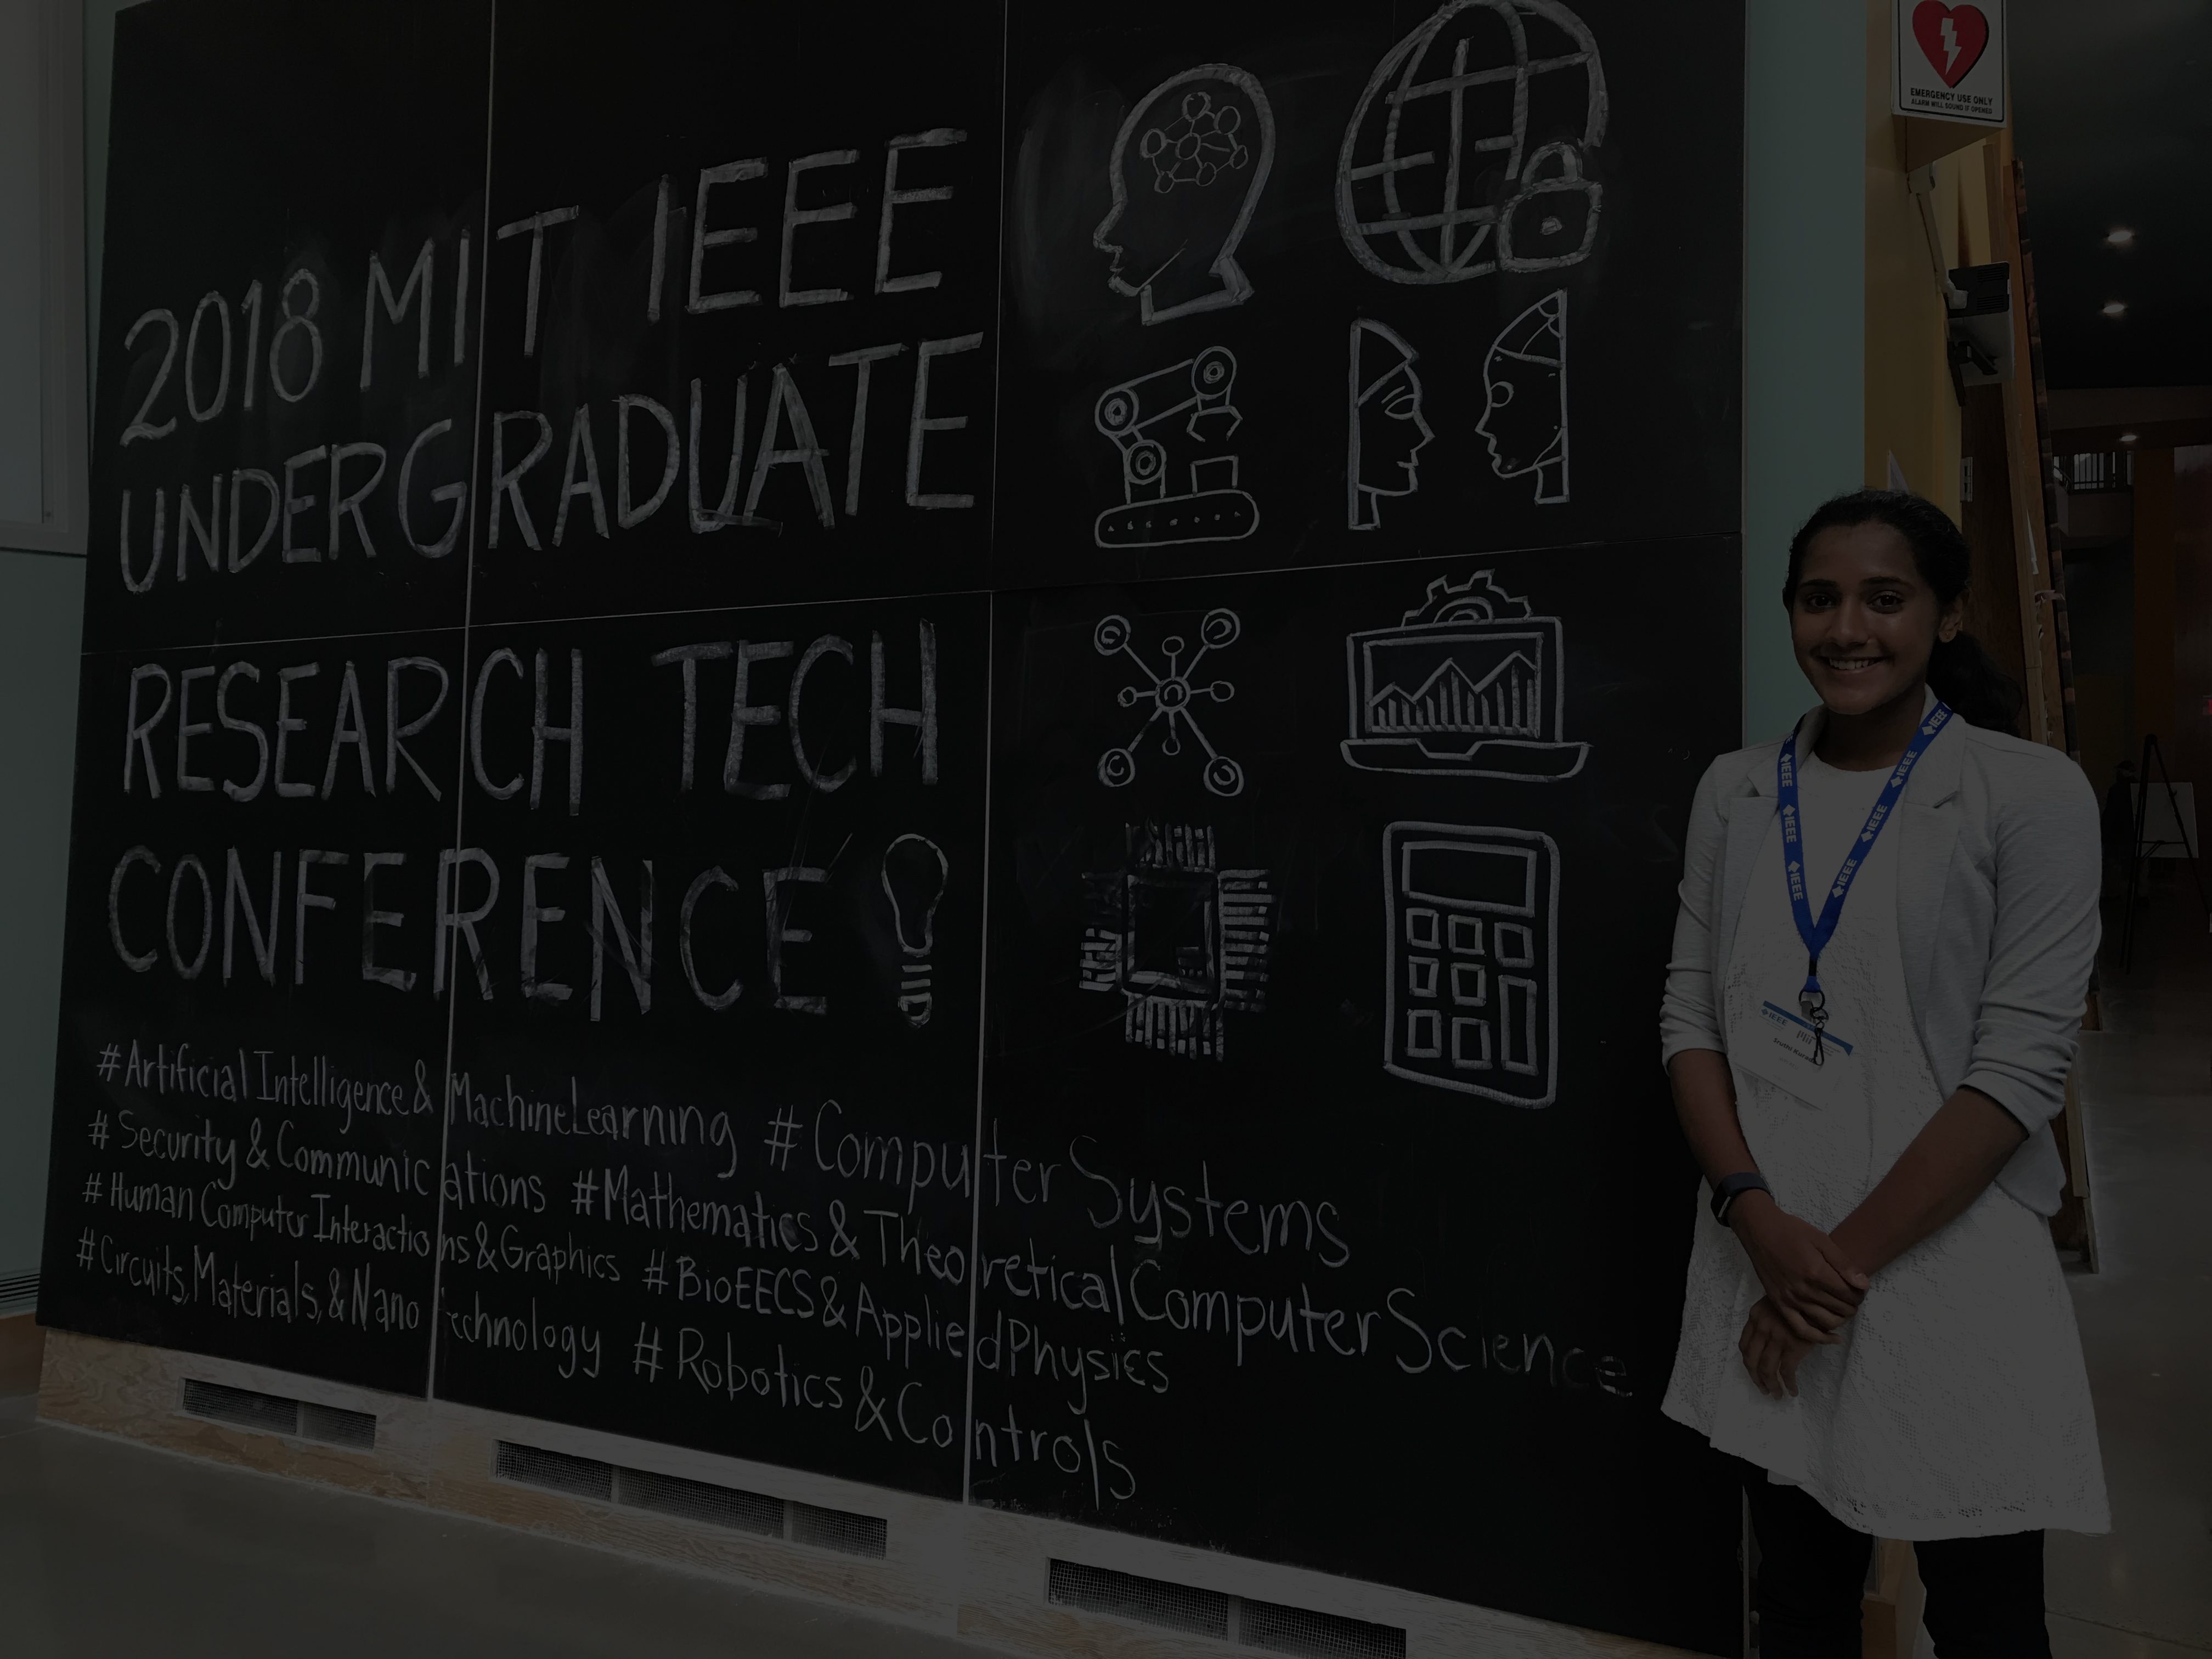 2018 MIT IEEE
UNDERGRADUATE
RESEARCH TECH
CONFERENCE
#Artificial Intelligence & MachineLearning #ComputerSystems
#Security & Communications #Mathematics & TheoreticalComputerScience
#Human Computer Interactions & Graphics #BioEECS & AppliedPhysics
#Circuits, Materials, & Nanotechnology #Robotics & Controls
EMERGENCY USE ONLY
ALARM WILL SOUND IF OPENED
IEEE
IEEE
IEEE
IEEE
IEEE
IEEE
IEEE
IEEE
MIT